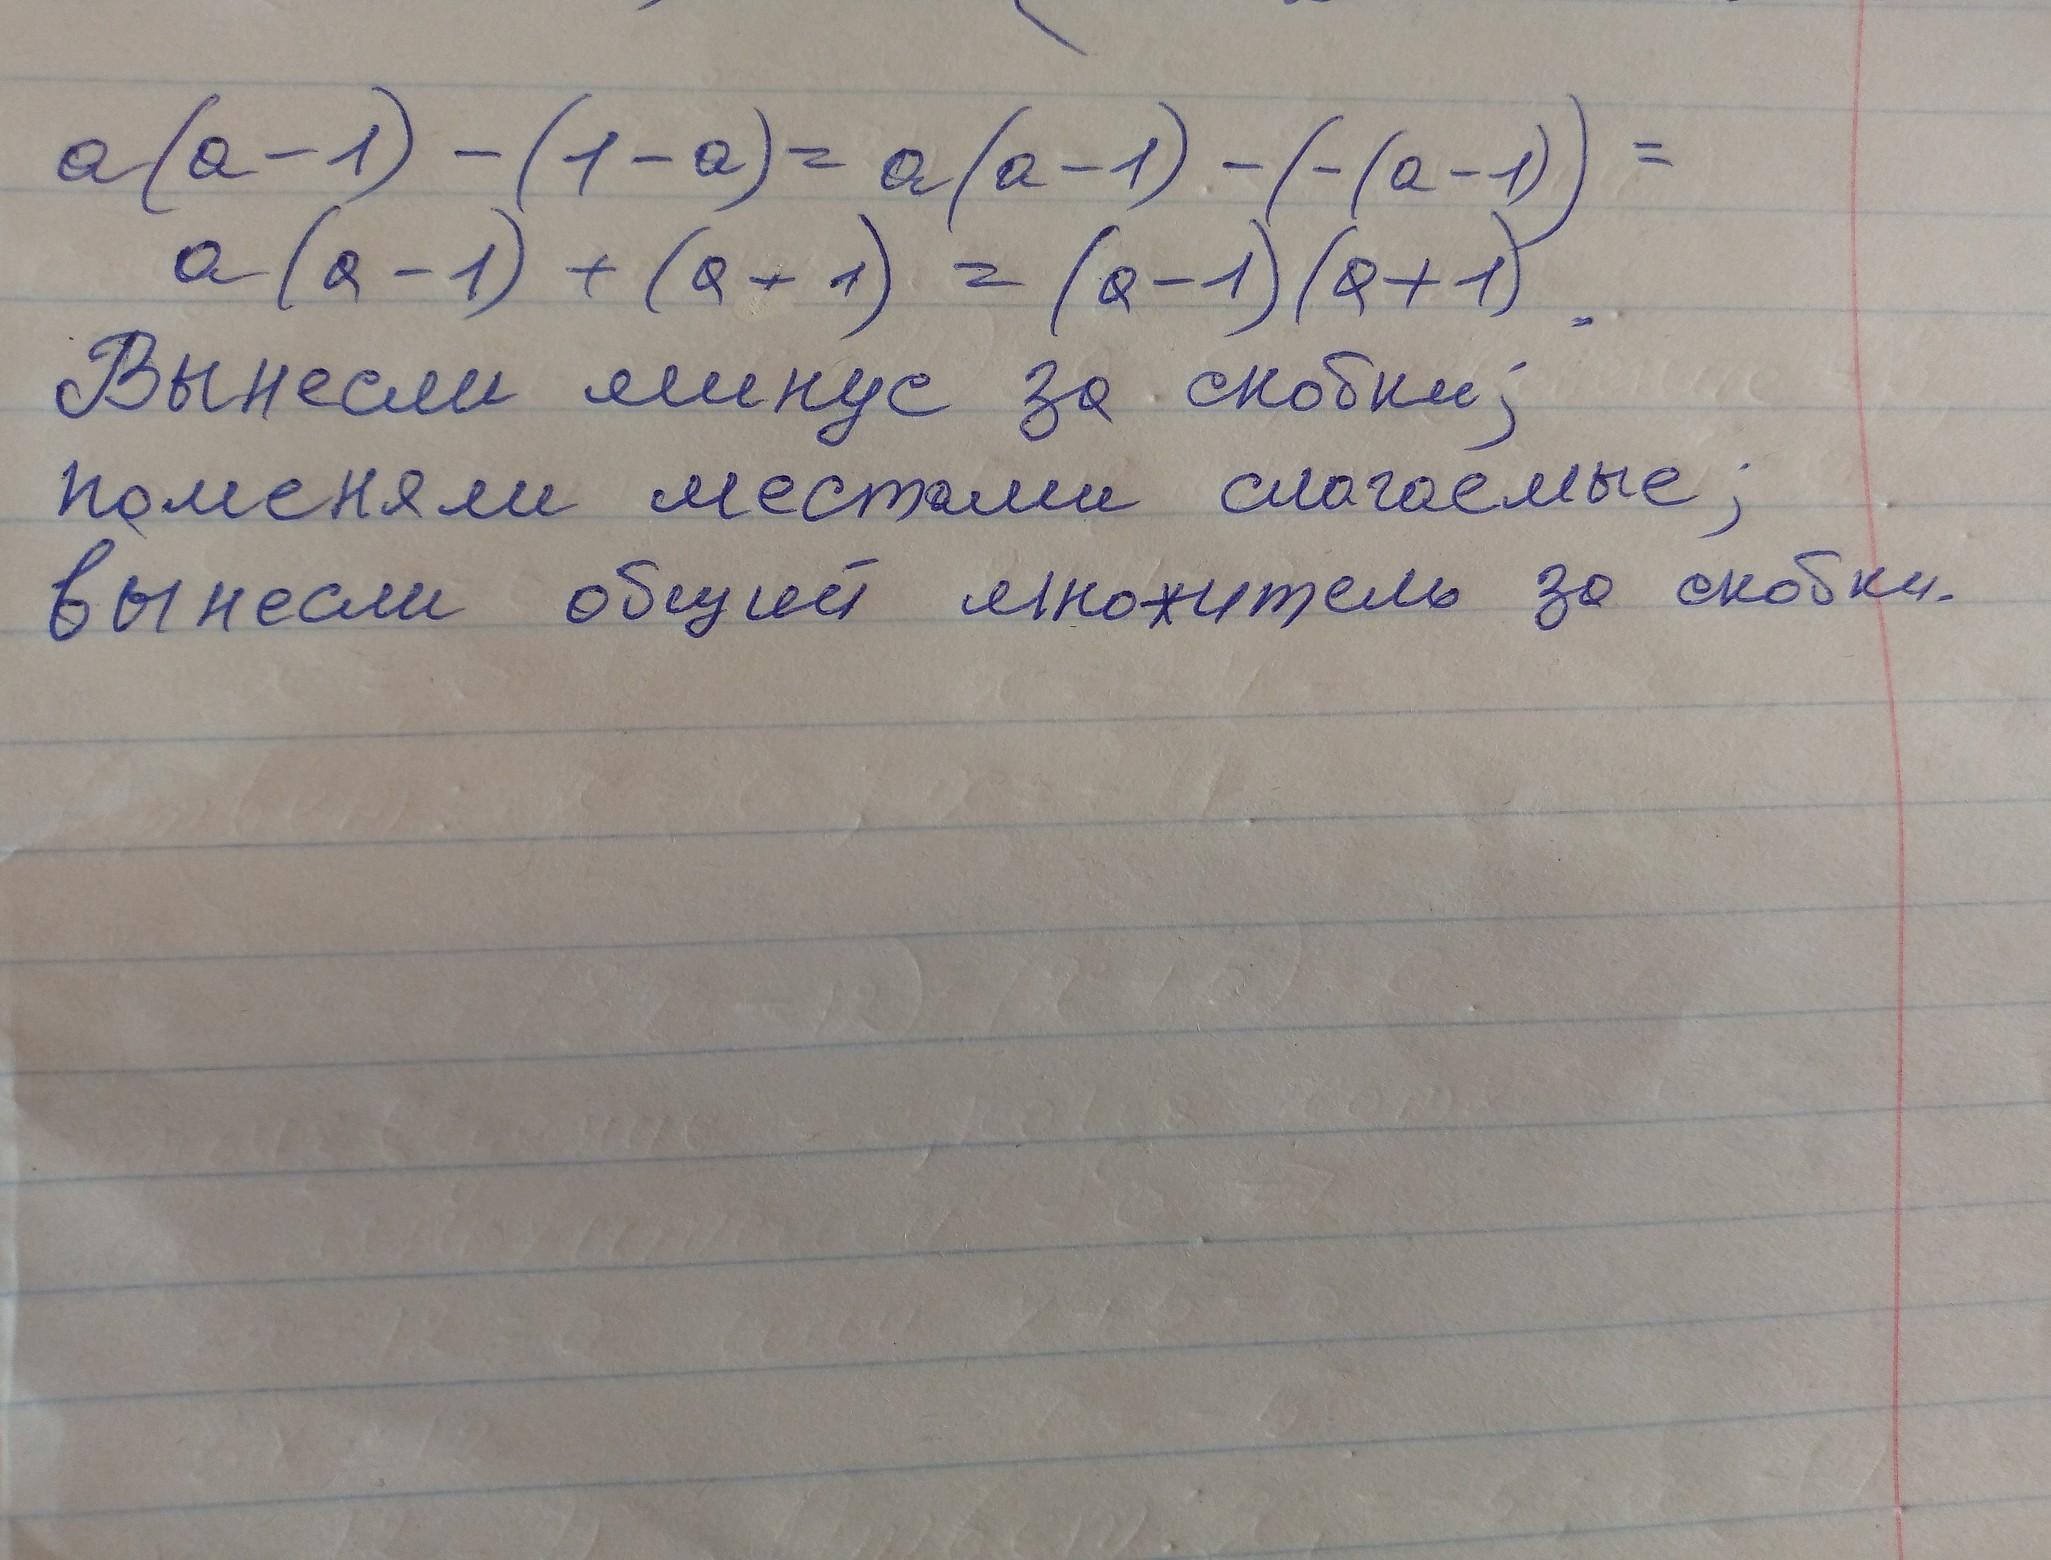 a(a-1)-(1-a)=a(a-1)-(-(a-1))=
a(a-1)+(a+1)=(a-1)(a+1).
Вынесли минус за скобки;
поменяли местами слагаемые;
вынесли общий множитель за скобки.